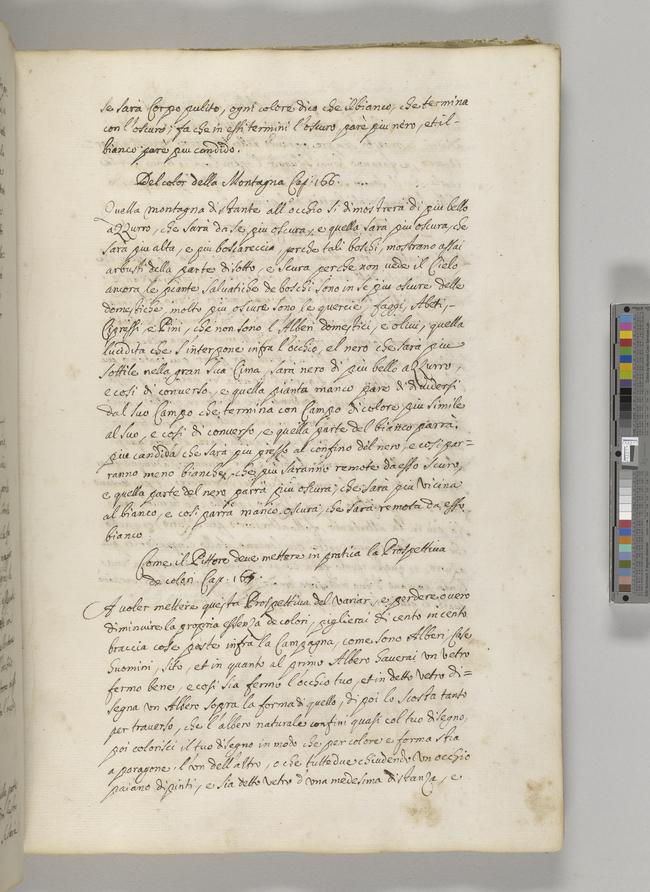 se sarà Corpo pulito, ogni colore dico che il bianco, che termina
con l'oscuro; fa che in essi termini l'oscuro, pare piu nero, et il-
bianco pare piu candido.
Del color della Montagna Cap: 166.
Quella montagna distante all'occhio si dimostrerà di piu bello
azzurro, che sarà da se piu oscura, e quella sarà piu oscura, che
sarà piu alta, e piu boscareccia, perche tali boschi, mostrano assai
arbusti della parte di sotto, e scura perche non vede il Cielo
ancora le piante salvatiche de boschi sono in se piu oscure delle
domestiche, molto piu oscure sono le quercie, faggi, Abeti,-
Cipressi, e Pini, che non sono l'Alberi domestici, e olivi, quella
lucidità che s'interpone infra l'occhio, el nero che sarà piu
sottile nella gran sua Cima, sarà nero di piu bello azzurro,
e cosi di converso, e quella pianta manco pare di dividersi
dal suo Campo che termina con Campo di colore piu simile
al suo, e cosi di converso, e quella parte del bianco parrà.
piu candida che sarà piu presso al confino del nero, e cosi par=
ranno meno bianche, che piu saranno remote da esso scuro,
e quella parte del nero parrà piu oscura, che sarà piu vicina
al bianco, e cosi parrà manco oscura, che sarà remota da esso
bianco
Come il Pittore deve mettere in pratica la Prospettiva
de colori Cap: 167.
A voler mettere questa Prospettiva del variar, e perdere overo
diminuire la propria essenza de colori, piglierai di cento in cento
braccia cose poste infra la Campagna, come sono Alberi, Case
huomini, sito, et in quanto al primo Albero haverai un vetro
fermo bene, e cosi sia fermo l'occhio tuo, et in detto vetro di=
segna un Albero sopra la forma di quello, di poi lo scosta tanto
per traverso, che l'albero naturale confini quasi col tuo disegno,
poi colorisci il tuo disegno in modo che per colore e forma stia
a paragone l'un dell'altro, o che tutte due chiudendo un occhio
paiano dipinti, e sia detto vetro d'una medesima distanza, e